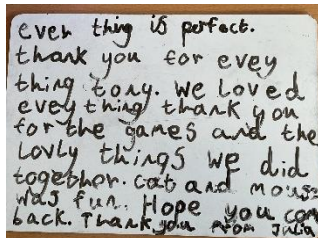 ever thing is perfect.
thank you for evey
thing tony. We Loved
evey thing thank you
for the games and the
Lovly things we did
together. cat and mouse
was fun. Hope you com
back. Thank you From Julia